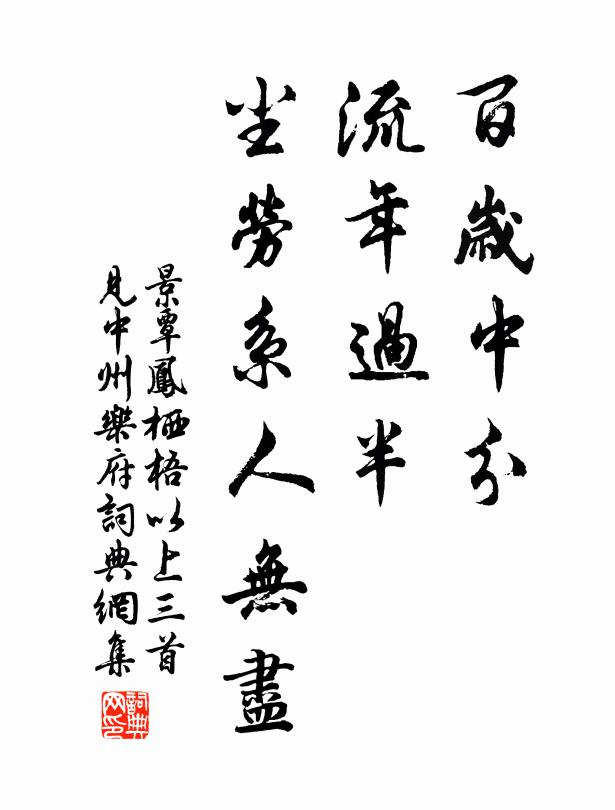 百歲中分
流年過半
尘勞系人無盡
景覃鳳栖梧以上三首
見中州樂府詞典網集
詞典網印